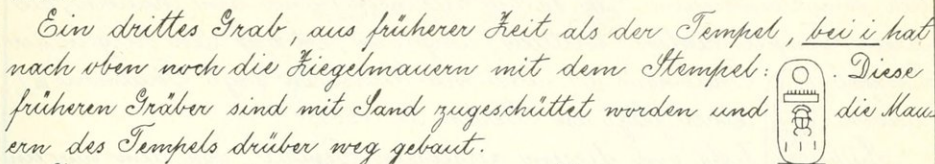 Ein drittes Grab, aus früherer Zeit als der Tempel, bei i hat
nach oben noch die Ziegelmauern mit dem Stempel: . Diese
früheren Gräber sind mit Sand zugeschüttet worden und die Mau-
ern des Tempels drüber weg gebaut.